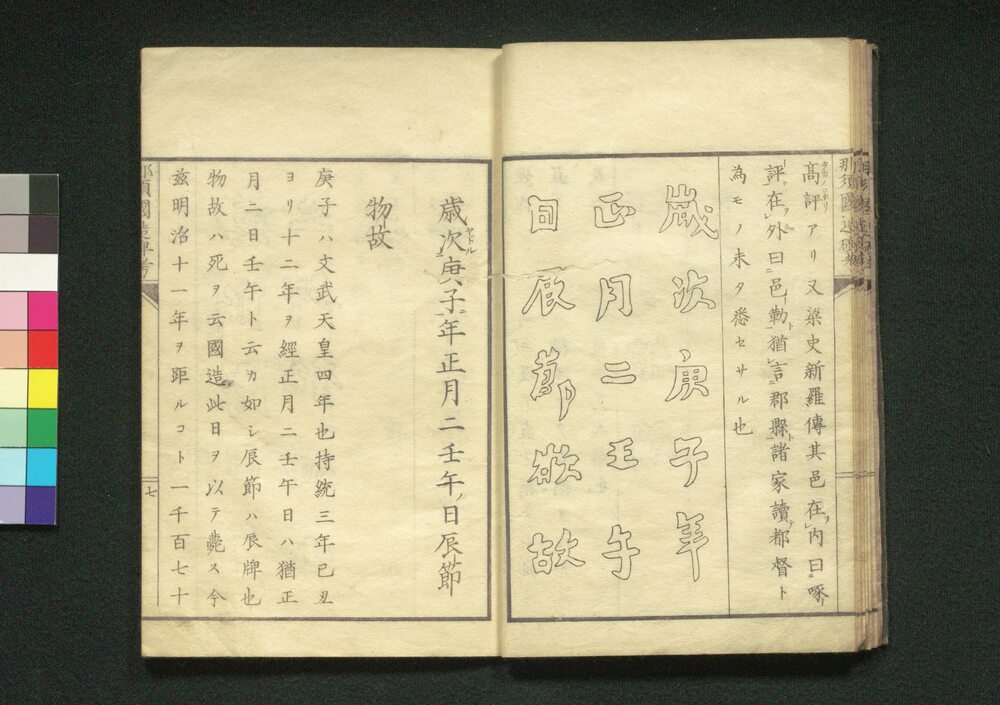 高評アリ又梁史新羅傳其邑在内曰啄
評在外曰邑勒猶言郡縣諸家讀都督ト
為モノ未タ悉セサル也
歳次庚子年
正月二壬午
日辰節物故
那須國造碑考
歳次庚子年正月二壬午日辰節
物故
庚子ハ文武天皇四年也持統三年已丑
ヨリ十二年ヲ經正月二壬午日ハ猶正
月二日壬午ト云カ如シ辰節ハ辰牌也
物故ハ死ヲ云國造此日ヲ以テ薨ス今
茲明治十一年ヲ距ルコト一千百七十
那須國造碑考
七